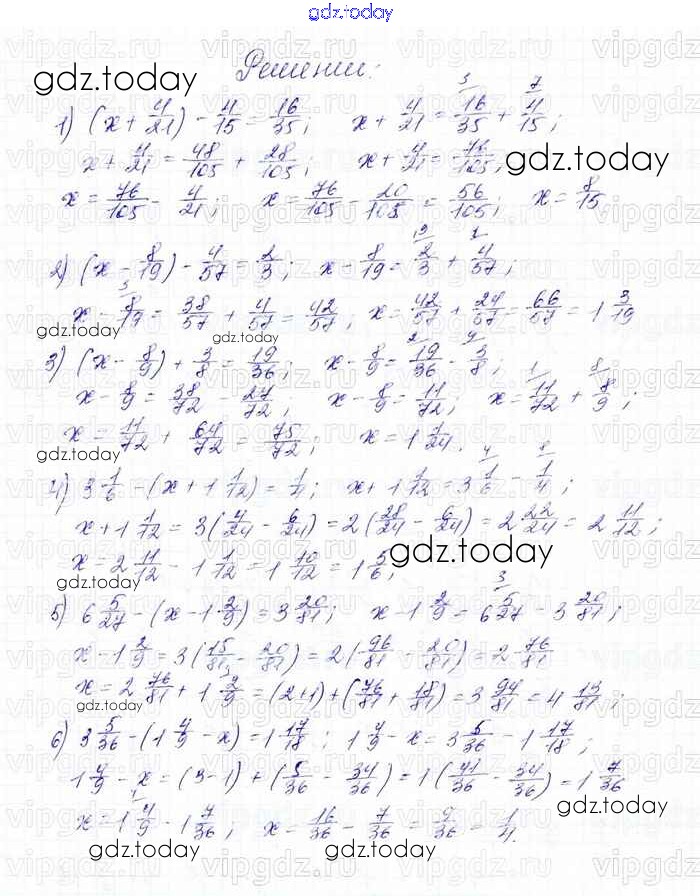 gdz.today
Решении:
gdz.today
1) (x + 4/21) - 4/15 = 16/35; x + 4/21 = 16/35 + 4/15;
x + 4/21 = 48/105 + 28/105; x + 4/21 = 76/105;
gdz.today
x = 76/105 - 4/21; x = 76/105 - 20/105 = 56/105; x = 8/15
2) (x - 8/19) - 4/57 = 2/3; x - 8/19 = 2/3 + 4/57;
x - 8/19 = 38/57 + 4/57 = 42/57; x = 42/57 + 24/57 = 66/57 = 1 3/19
gdz.today gdz.today
3) (x - 8/9) + 3/8 = 19/36; x - 8/9 = 19/36 - 3/8
x - 8/9 = 38/72 - 27/72; x - 8/9 = 11/72; x = 11/72 + 8/9;
gdz.today
x = 11/72 + 64/72 = 75/72; x = 1 1/24.
4) 3 1/6 - (x + 1 1/12) = 1/4; x + 1 1/12 = 3 1/6 - 1/4;
x + 1 1/12 = 3(4/24 - 6/24) = 2(28/24 - 6/24) = 2 22/24 = 2 11/12;
x = 2 11/12 - 1 1/12 = 1 10/12 = 1 5/6;
gdz.today
gdz.today
5) 6 5/27 - (x - 1 2/9) = 3 20/81; x - 1 2/9 = 6 5/27 - 3 20/81;
x - 1 2/9 = 3(15/81 - 20/81) = 2(96/81 - 20/81) = 2 76/81
x = 2 76/81 + 1 2/9 = (2+1) + (76/81 + 18/81) = 3 94/81 = 4 13/81;
gdz.today
6) 3 5/36 - (1 4/9 - x) = 1 17/18; 1 4/9 - x = 3 5/36 - 1 17/18;
1 4/9 - x = (3-1) + (5/36 - 34/36) = 1(41/36 - 34/36) = 1 7/36
x = 1 4/9 - 1 7/36; x = 16/36 - 7/36 = 9/36 = 1/4.
gdz.today
gdz.today gdz.today